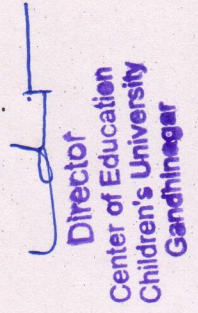 Director
Center of Education
Children's University
Gandhinagar